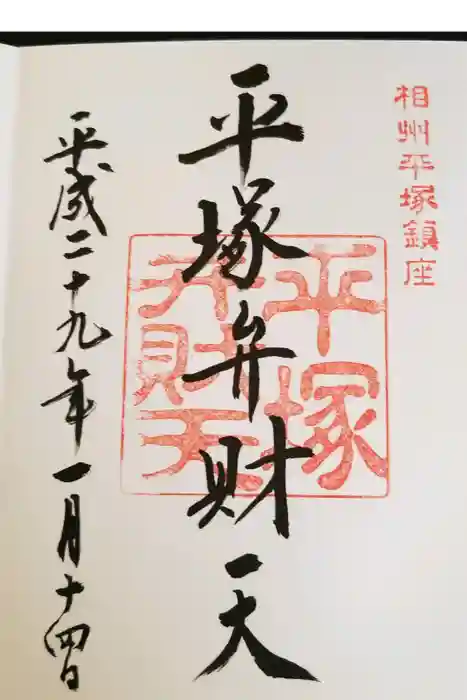 相州平塚鎮座
平塚弁財天
平塚
弁財天
平成二十九年一月十四日